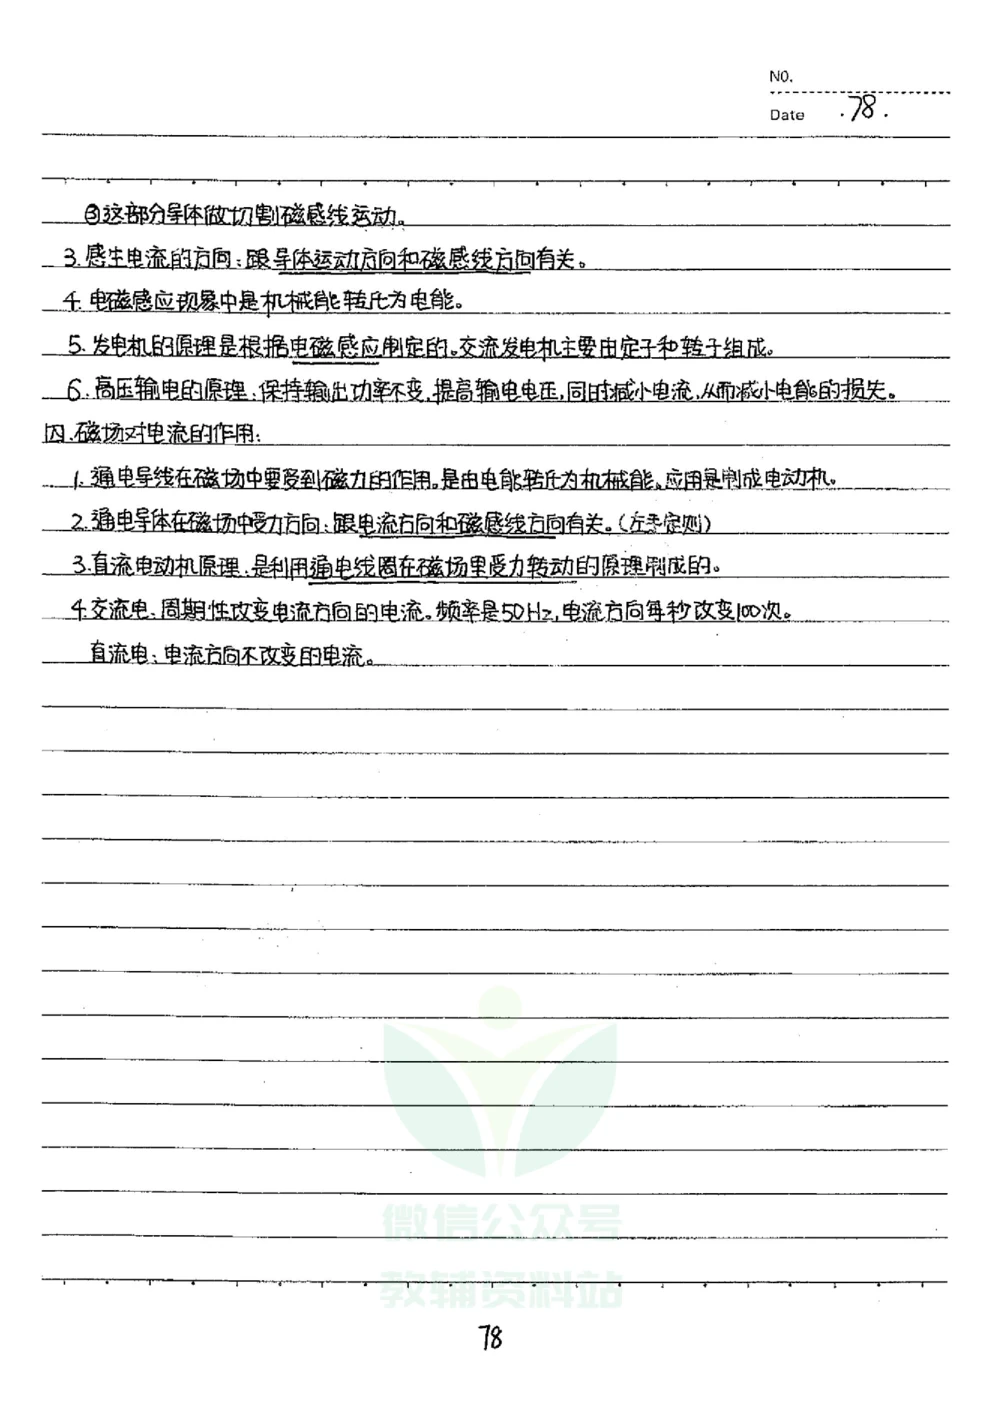 NO.
Date .78.
③这部分导体做切割磁感线运动。
3.感生电流的方向:跟导体运动方向和磁感线方向有关。
4.电磁感应现象中是机械能转化为电能。
5.发电机的原理是根据电磁感应制定的。交流发电机主要由定子和转子组成。
6.高压输电的原理:保持输出功率不变,提高输电电压,同时减小电流,从而减小电能的损失。
四.磁场对电流的作用:
1.通电导线在磁场中要受到磁力的作用。是由电能转化为机械能。应用是制成电动机。
2.通电导体在磁场中受力方向:跟电流方向和磁感线方向有关。(左手定则)
3.直流电动机原理:是利用通电线圈在磁场里受力转动的原理制成的。
4.交流电:周期性改变电流方向的电流。频率是50Hz,电流方向每秒改变100次。
直流电:电流方向不改变的电流。
微信公众号
教辅资料站
78